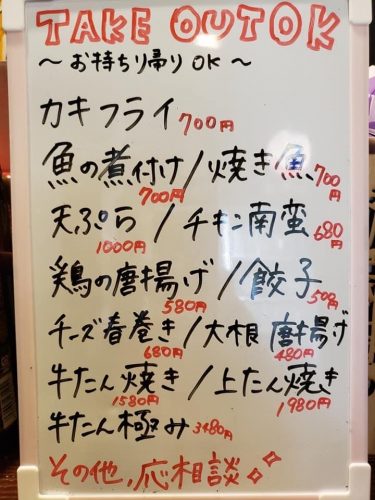 TAKE OUT OK
～お持ち帰りOK～
カキフライ 700円
魚の煮付け/焼き魚 700円
700円
天ぷら / チキン南蛮 680円
1000円
鶏の唐揚げ/餃子
580円 500円
チーズ春巻き/大根唐揚げ
680円 480円
牛たん焼き/上たん焼き
1580円 1980円
牛たん極み 3480円
その他,応相談